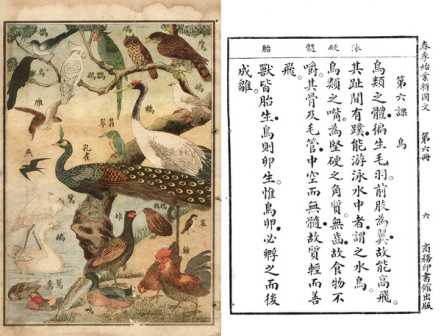 春季始業新國文
第六冊
六
商務印書館出版
第六課　鳥
鳥類之體。徧生毛羽。前肢為翼。故能高飛。
其趾間有蹼。能游泳水中者。謂之水鳥。
鳥類之嘴。為堅硬之角質。無齒。故食物不
嚼。其骨及毛管。中空而無髓。故質輕而善
飛。
獸皆胎生。鳥則卵生。惟鳥卵必孵之而後
成雛。
泳
硬
髓
胎
鶴
翡翠
孔雀
雁
燕
雉